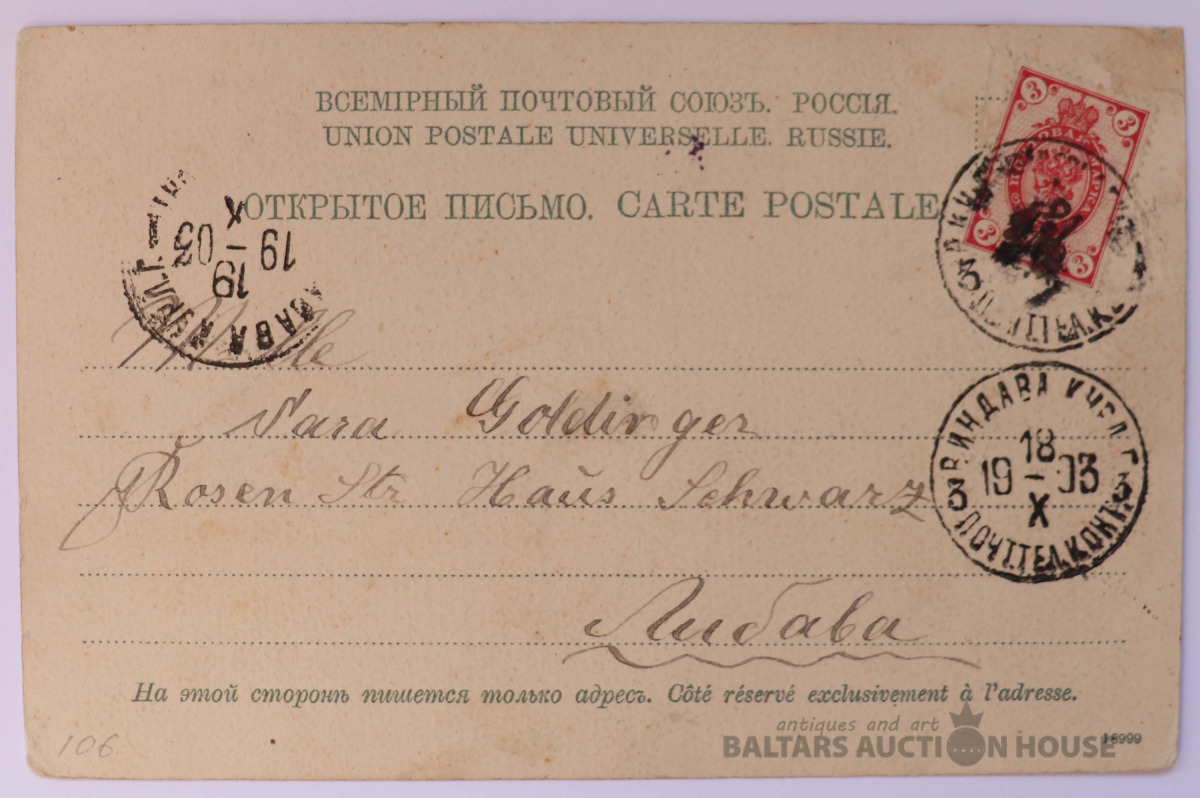 ВСЕМІРНЫЙ ПОЧТОВЫЙ СОЮЗЪ. РОССІЯ.
UNION POSTALE UNIVERSELLE. RUSSIE.
ОТКРЫТОЕ ПИСЬМО. CARTE POSTALE
3 3 3 3
X
19 – 03
19
ПОЧ.ТЕЛ.К
3
Mlle
Sara Goldinger
Rosen Str Haus Schwarz
ВИНДАВА КУРЛ.Г.
18
19 – 03
X
3 ПОЧ.ТЕЛ.КОНТ. 3
Либава
На этой сторонѣ пишется только адресъ. Côté réservé exclusivement à l'adresse.
106
antiques and art
BALTARS AUCTION HOUSE
18999